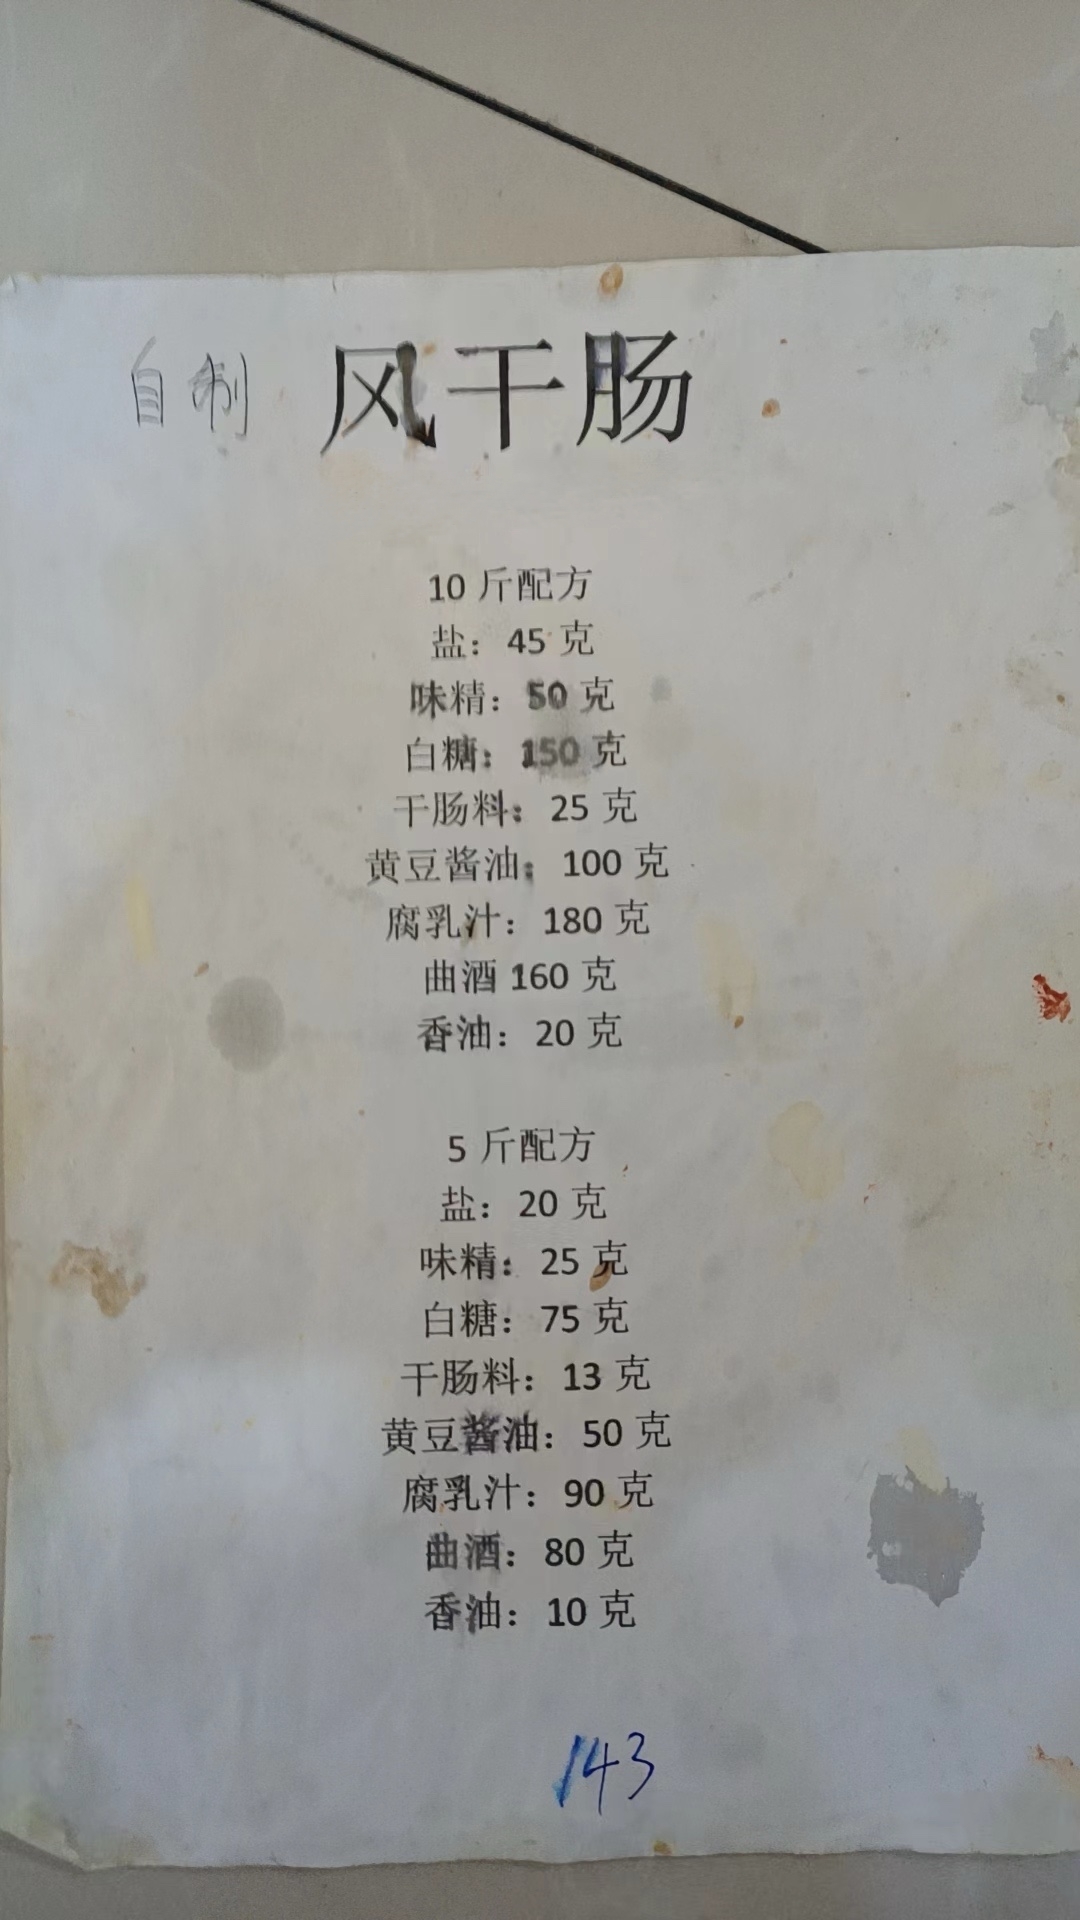 自制 风干肠
10 斤配方
盐：45 克
味精：50 克
白糖：150 克
干肠料：25 克
黄豆酱油：100 克
腐乳汁：180 克
曲酒 160 克
香油：20 克
5 斤配方
盐：20 克
味精：25 克
白糖：75 克
干肠料：13 克
黄豆酱油：50 克
腐乳汁：90 克
曲酒：80 克
香油：10 克
143